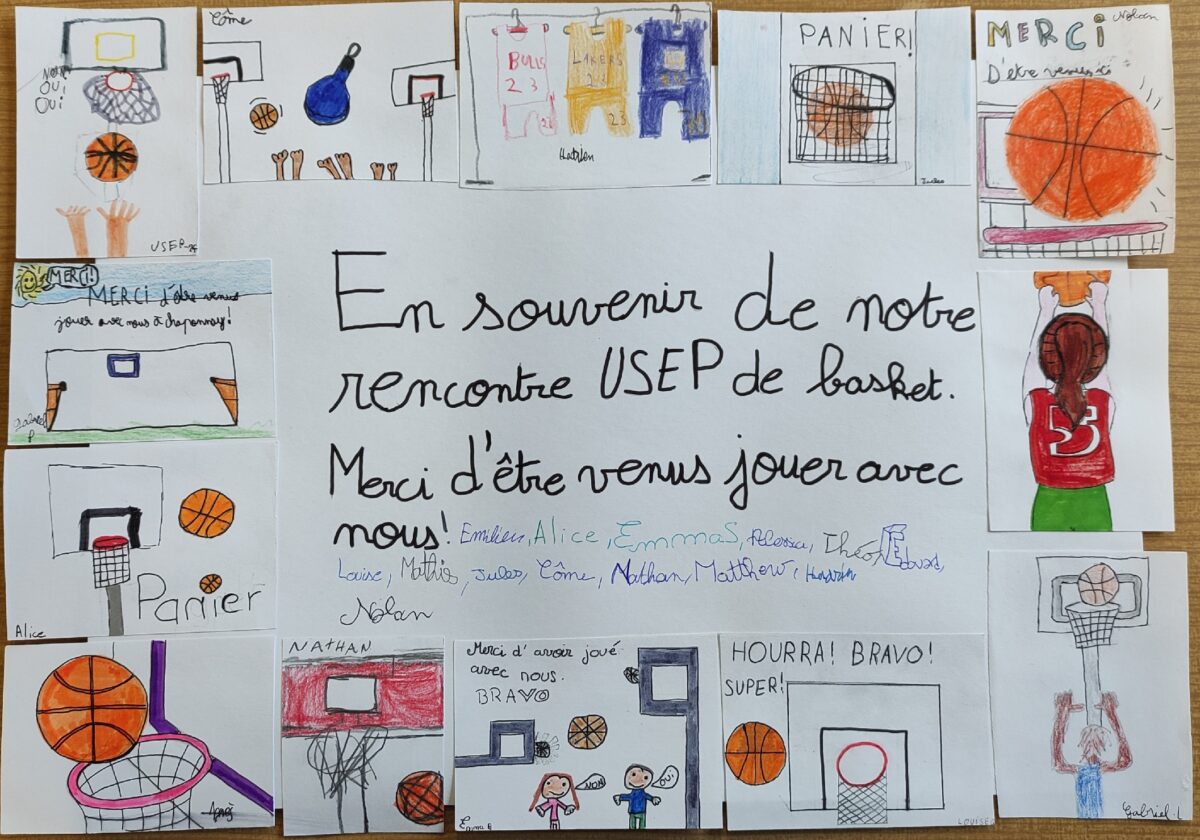 Côme
PANIER!
Nolan
MERCI
D'être venus ici
NON
OUI
OUI
BULLS
23
LAKERS
23
23
23
Jules
USEP
MERCI!
MERCI d'être venus
jouer avec nous à chaponnay!
Gabriel
P
En souvenir de notre
rencontre USEP de basket.
Merci d'être venus jouer avec
nous! Emilien, Alice, EmmaS, Théo, Edouard,
Louise, Mathis, Jules, Côme, Nathan, Matthew,
Nolan
5
Panier
Alice
NATHAN
Merci d'avoir joué
avec nous.
BRAVO
NON!
OUI
Emma
HOURRA! BRAVO!
SUPER!
LOUISE
Gabriel.L